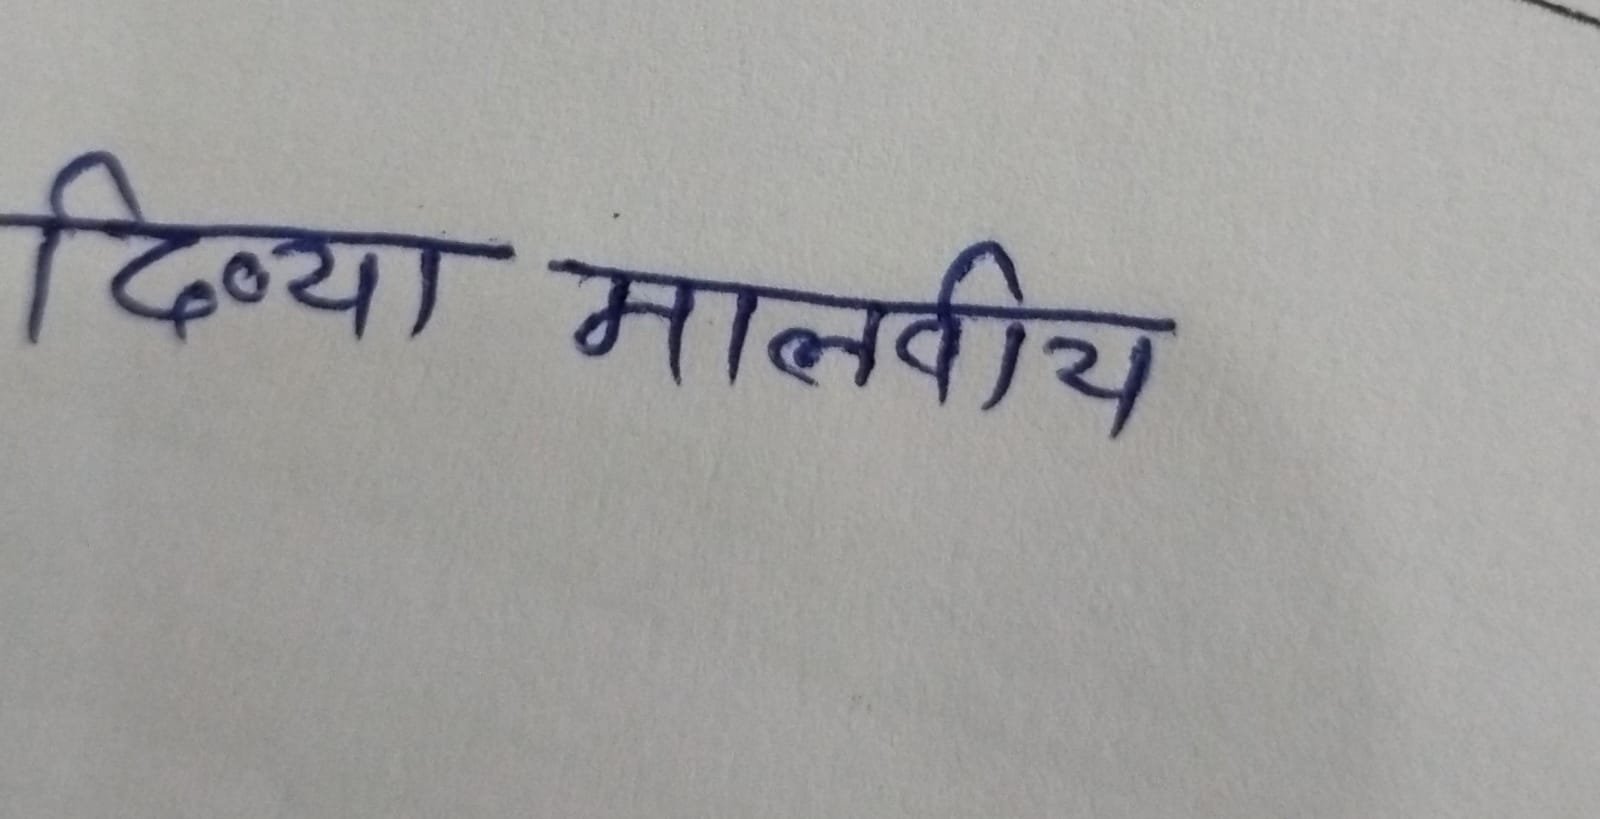 दिव्या मालवीय